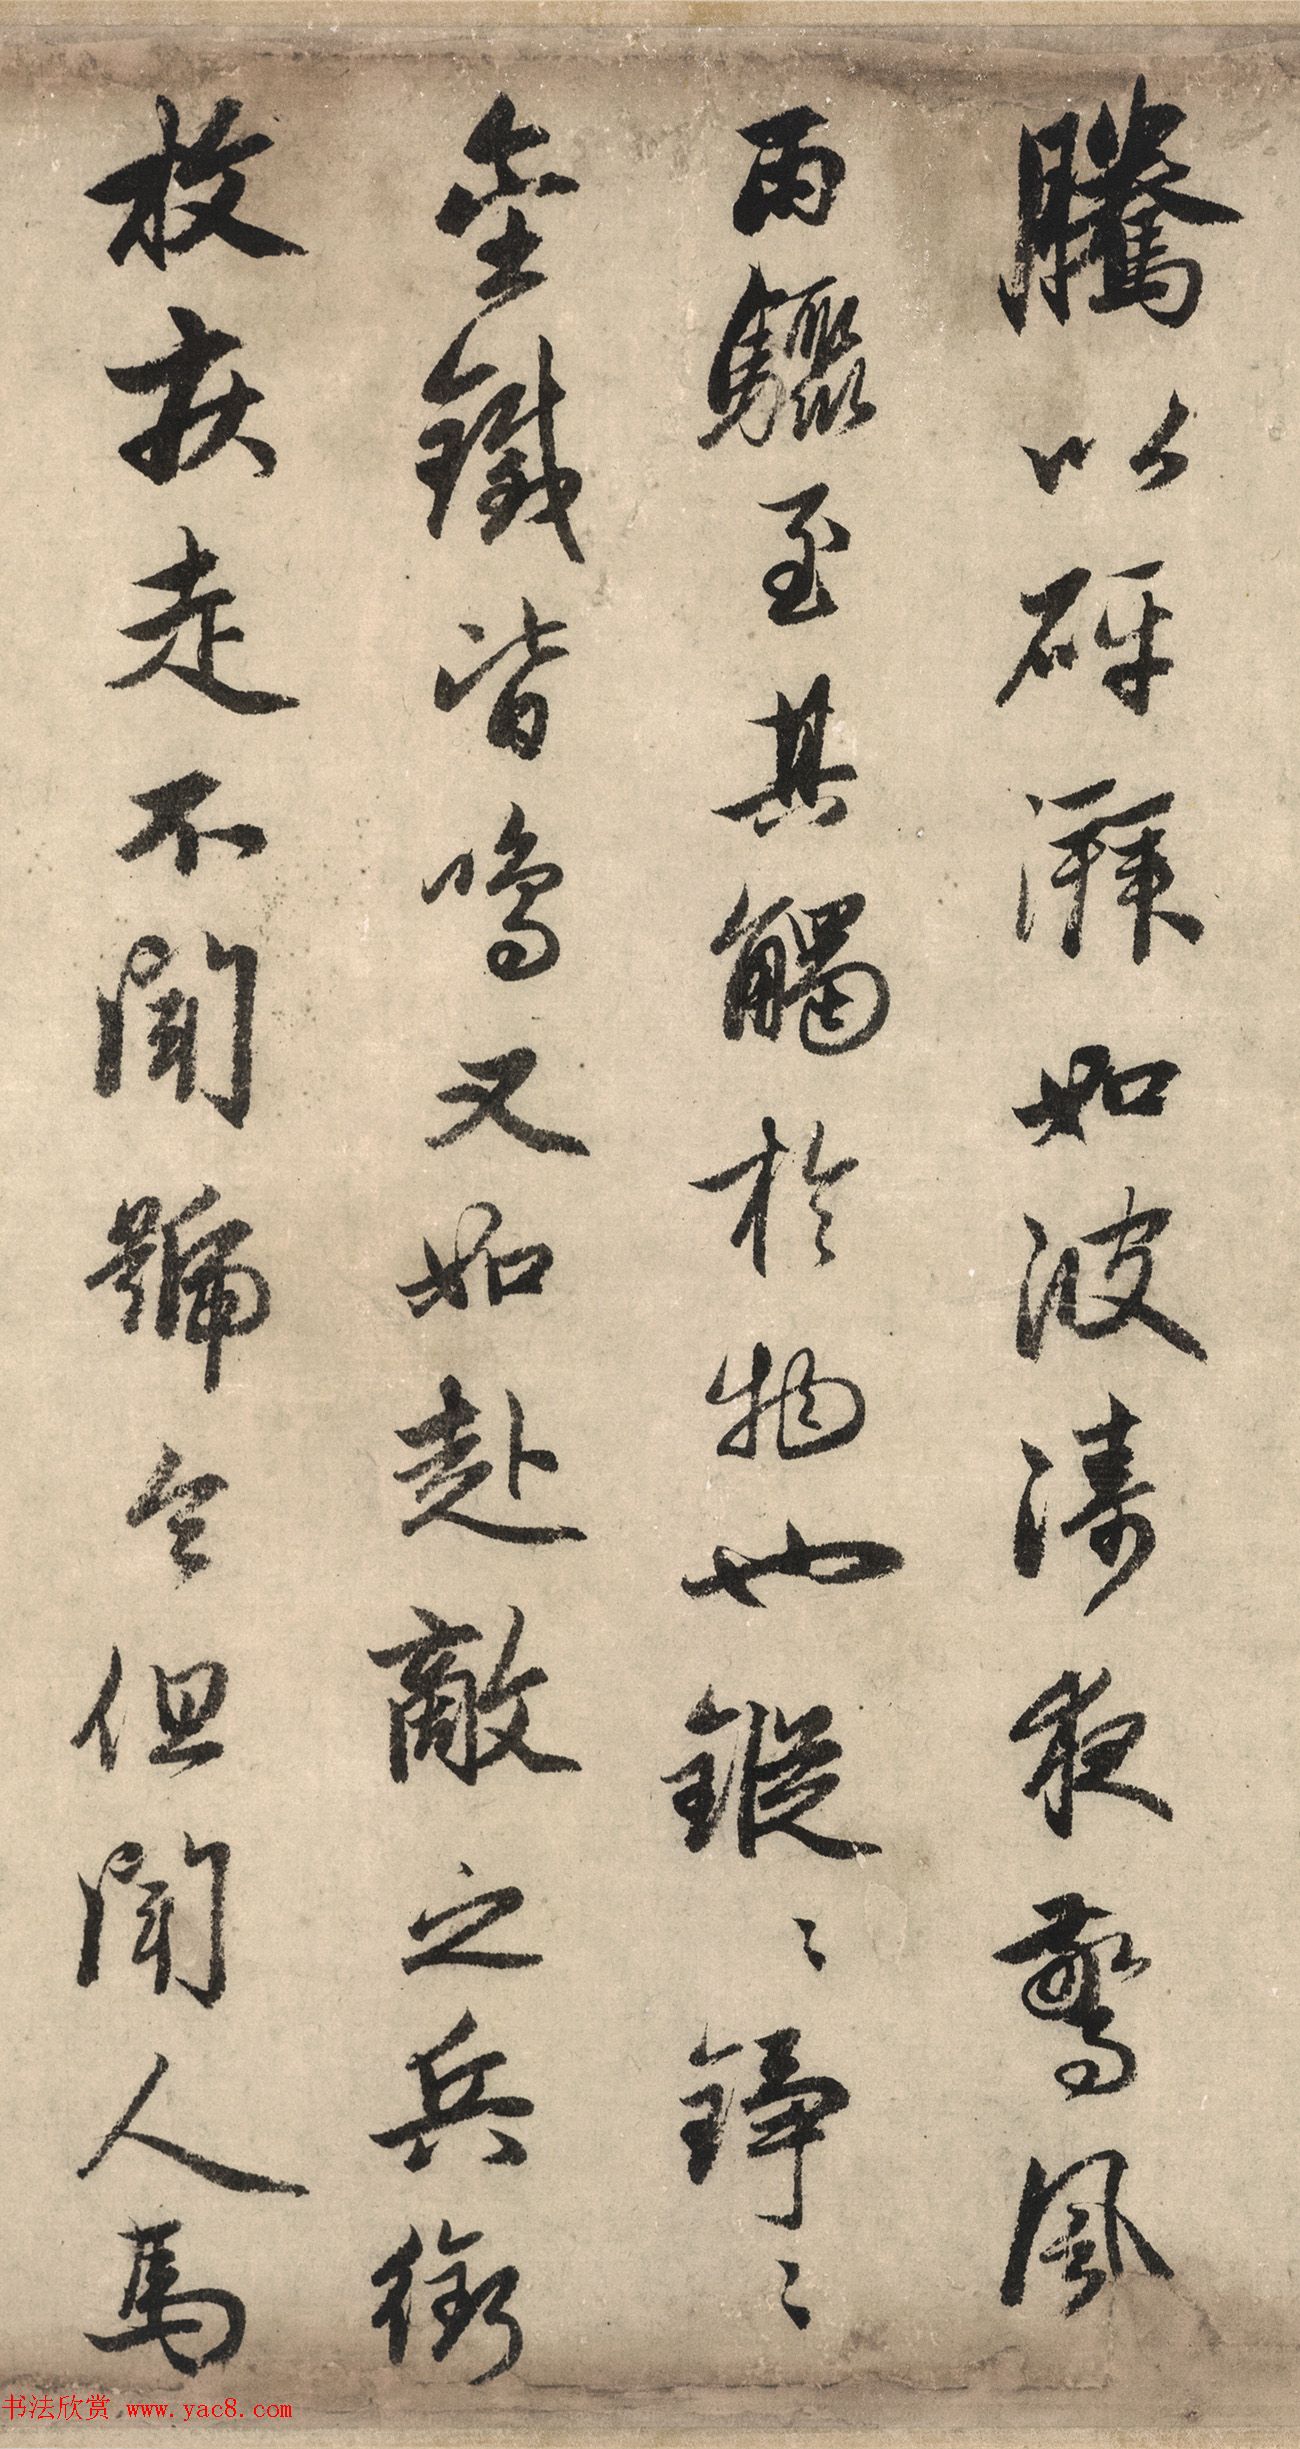 騰以砰湃如波濤夜驚風
雨驟至其觸於物也鏦〻錚〻
金鐵皆鳴又如赴敵之兵銜
枚疾走不聞號令但聞人馬
书法欣赏 www.yac8.com